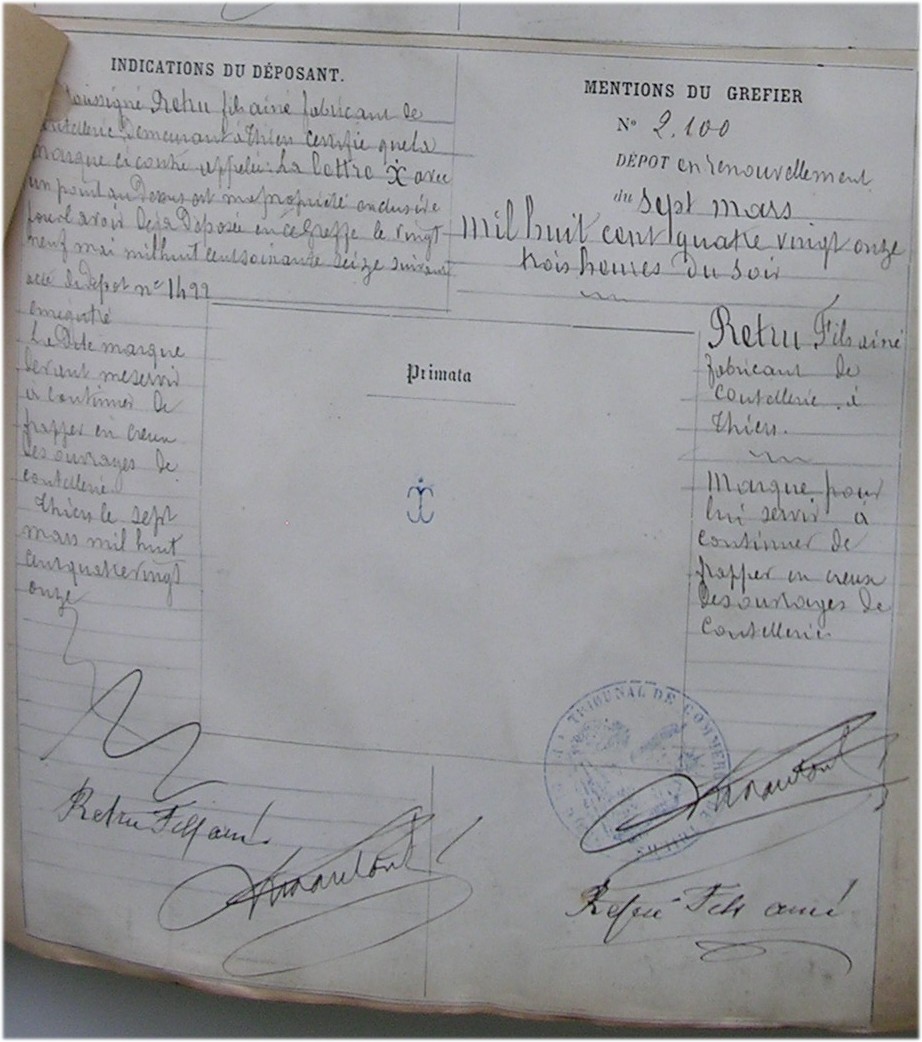 INDICATIONS DU DÉPOSANT.
soussigné Retru fils ainé fabricant de
coutellerie Demeurant à Thiers Certifie que la
marque ci contre appelée: La lettre Ẋ avec
un point au Dessus est ma propriété exclusive
pour l'avoir Déjà Déposée en ce Greffe le vingt
neuf mai mil huit cent soixante seize suivant
acte de dépot n° 1499
enregistré
La Dite marque
devant me servir
à continuer de
frapper en creux
des ouvrages de
coutellerie.
Thiers le sept
mars mil huit
cent quatre vingt
onze
Retru Fils ainé
MENTIONS DU GREFIER
N° 2.100
DÉPOT en renouvellement
du sept mars
mil huit cent quatre vingt onze
trois heures du soir
Retru Fils ainé
fabricant de
coutellerie à
Thiers.
Marque pour
lui servir à
continuer de
frapper en creux
des ouvrages de
coutellerie
Primata
TRIBUNAL DE COMMERCE DE THIERS
Retru Fils ainé